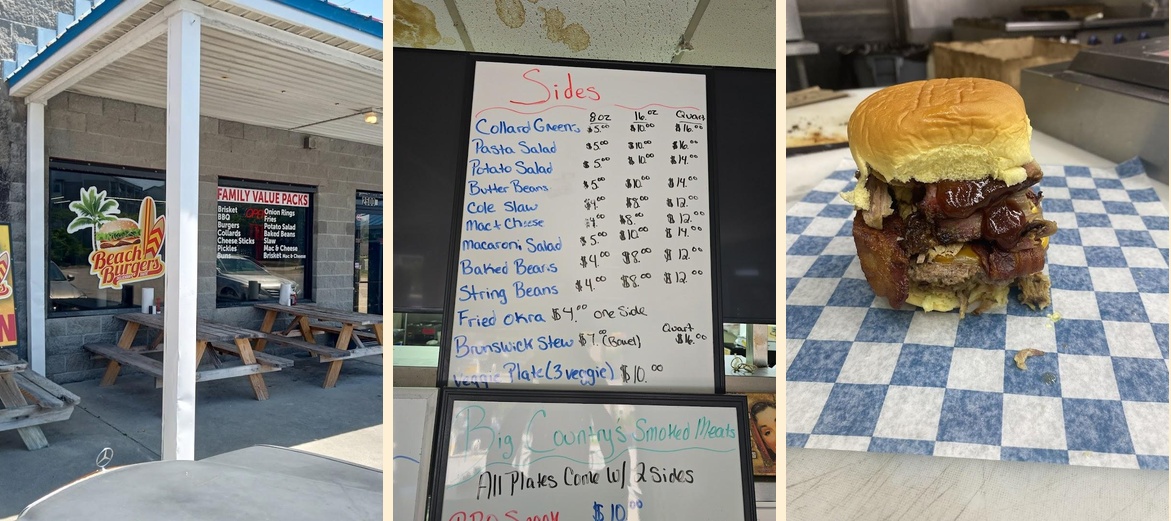 Beach
Burgers
FAMILY VALUE PACKS
Brisket
BBQ
Burgers
Collards
Cheese Sticks
Pickles
Buns
Onion Rings
Fries
Potato Salad
Baked Beans
Slaw
Mac & Cheese
Brisket Mac & Cheese
Sides
8oz 16.oz Quart
Collard Greens $5.00 $10.00 $16.00
Pasta Salad $5.00 $10.00 $16.00
Potato Salad $5.00 $10.00 $14.00
Butter Beans $5.00 $10.00 $14.00
Cole Slaw $4.00 $8.00 $12.00
Mac + Cheese $4.00 $8.00 $12.00
macaroni Salad $5.00 $10.00 $14.00
Baked Beans $4.00 $8.00 $12.00
String Beans $4.00 $8.00 $12.00
Fried Okra $4.00 one Side
Brunswick Stew $7.00 (Bowl) Quart $16.00
Veggie Plate (3 veggie) $10.00
Big Country's Smoked Meats
All Plates Come W/ 2 Sides
$10.00